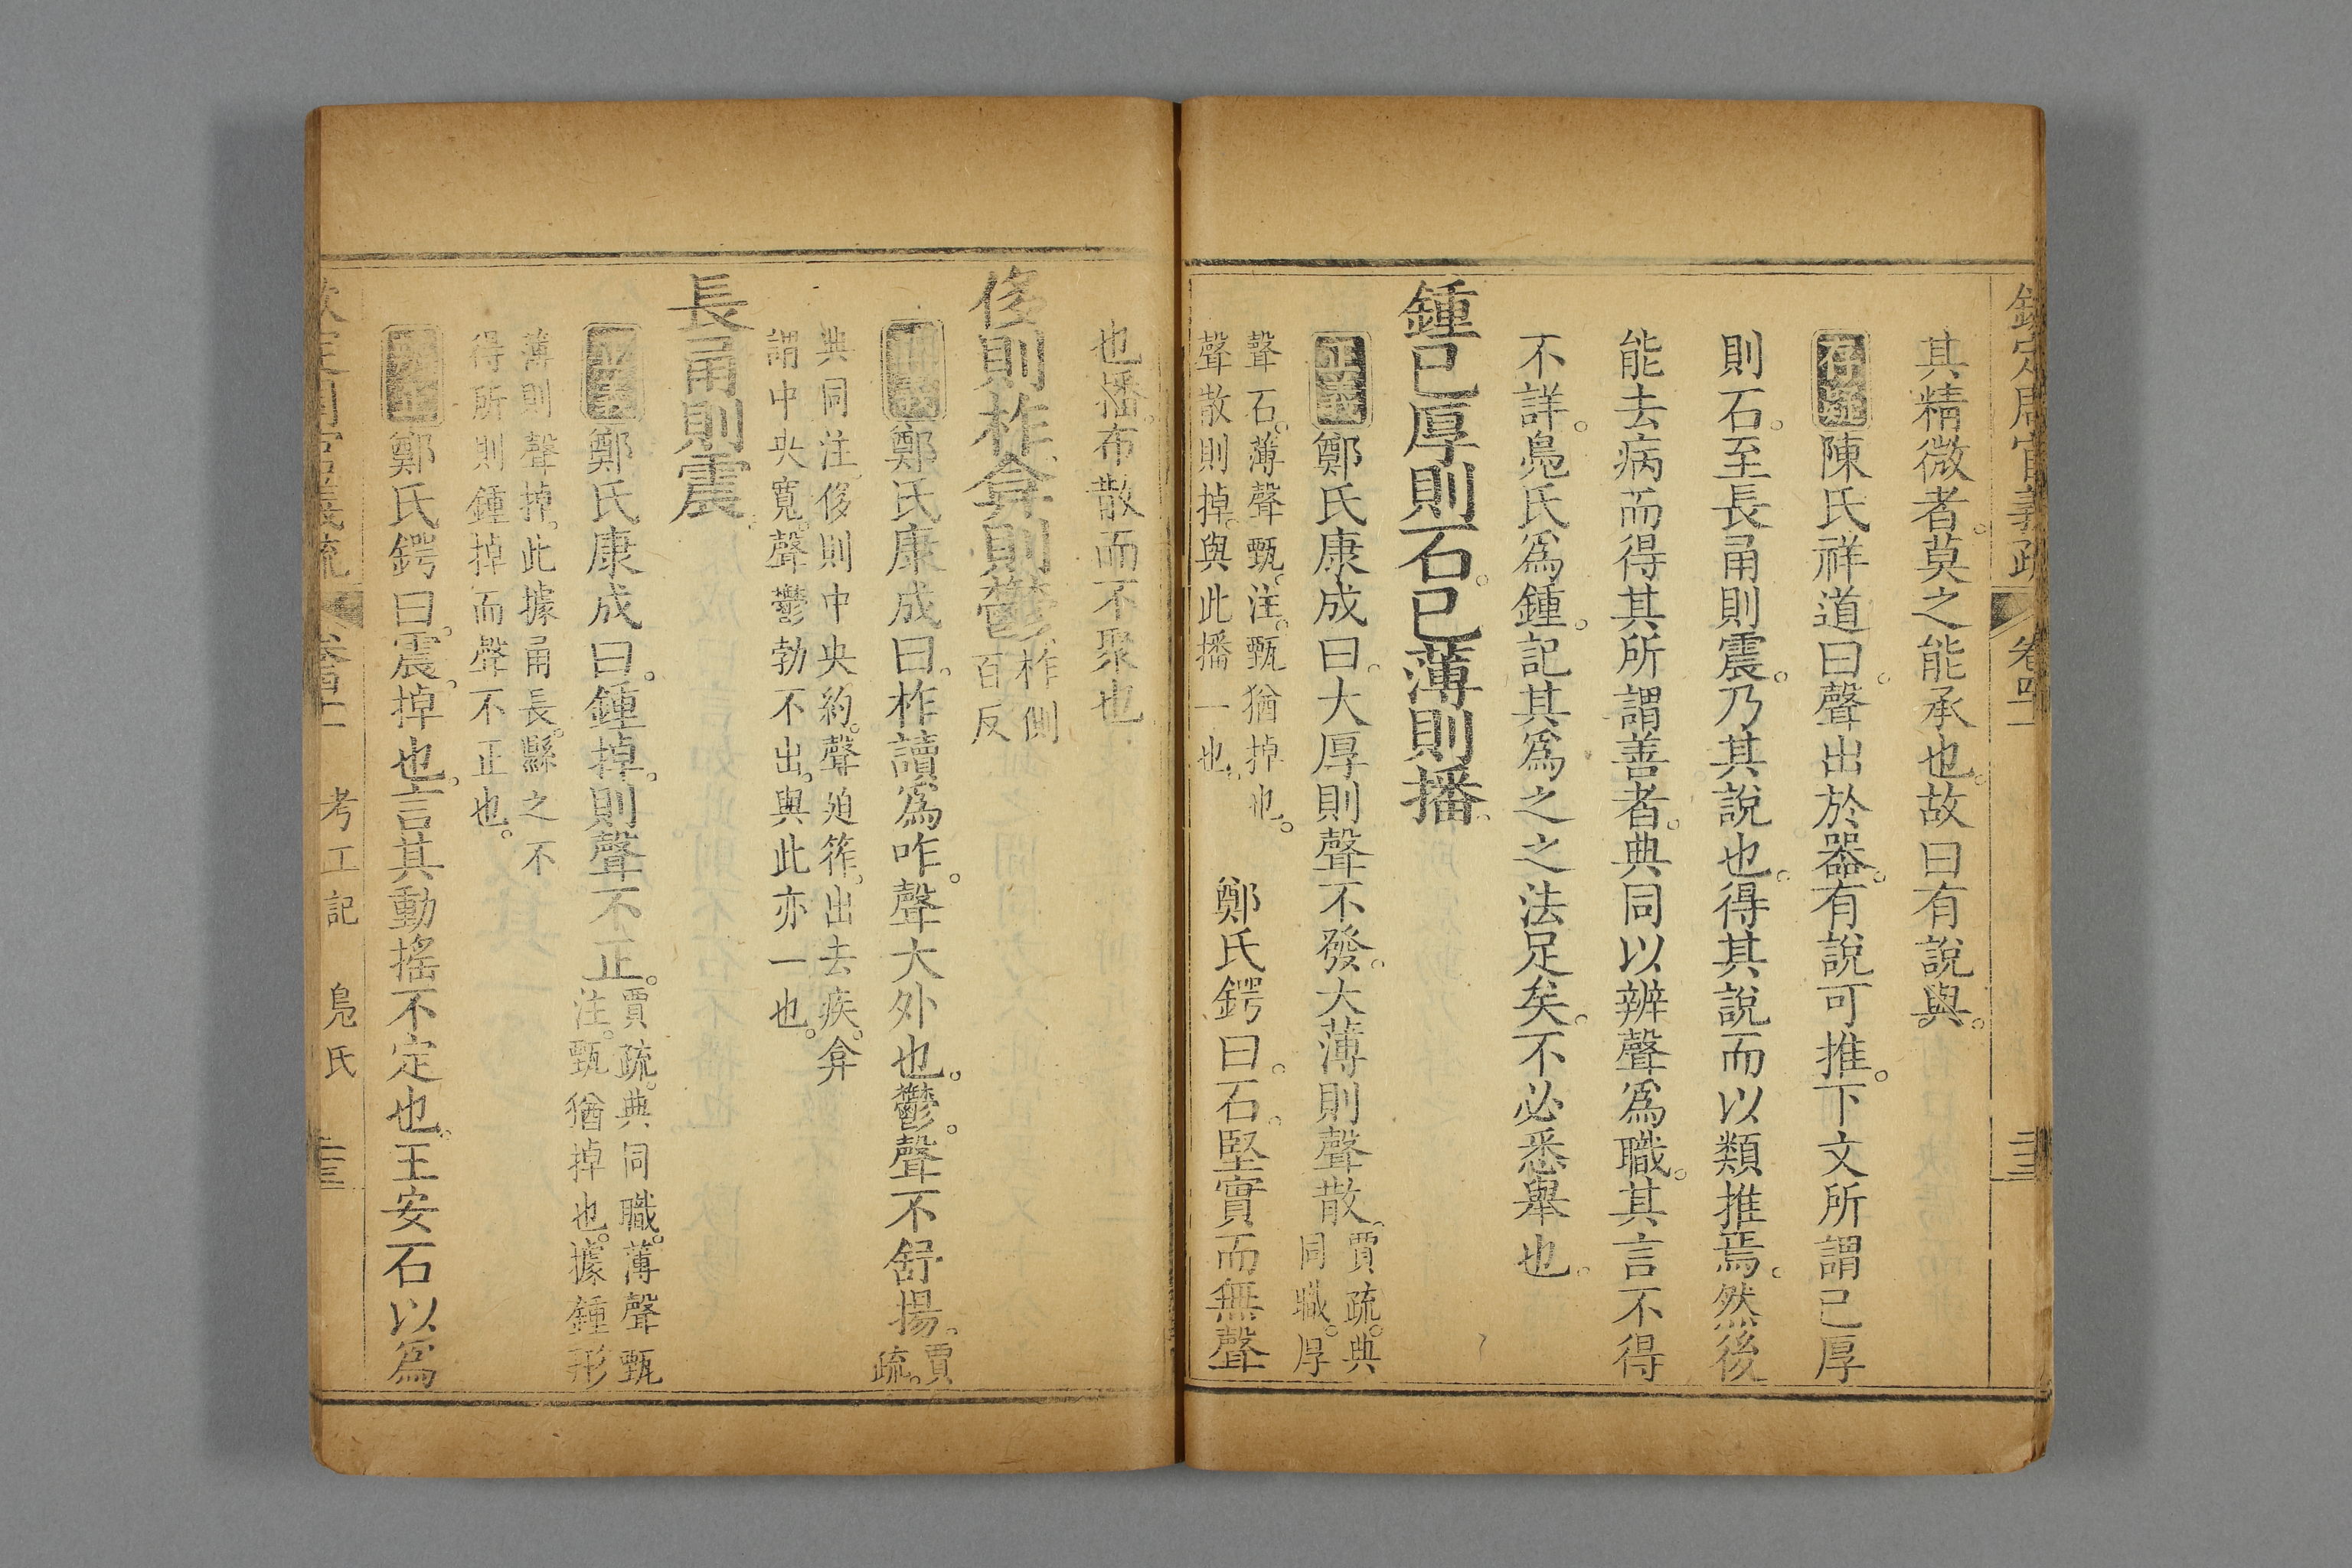 欽定周官義疏 卷四十一 三三
其精微者莫之能承也故曰有說與
存疑陳氏祥道曰聲出於器有說可推下文所謂已厚
則石至長甬則震乃其說也得其說而以類推焉然後
能去病而得其所謂善者典同以辨聲爲職其言不得
不詳鳧氏爲鍾記其爲之之法足矣不必悉舉也
鍾已厚則石已薄則播
正義鄭氏康成曰大厚則聲不發大薄則聲散賈疏典
同職厚
聲石薄聲甄注甄猶掉也
聲散則掉與此播一也
鄭氏鍔曰石堅實而無聲
也播布散而不聚也
侈則柞弇則鬱柞側
百反
正義鄭氏康成曰柞讀爲咋聲大外也鬱聲不舒揚賈
疏
典同注侈則中央約聲迫筰出去疾弇
謂中央寬聲鬱勃不出與此亦一也
長甬則震
正義鄭氏康成曰鍾掉則聲不正賈疏典同職薄聲甄
注甄猶掉也據鍾形
薄則聲掉此據甬長縣之不
得所則鍾掉而聲不正也
鄭氏鍔曰震掉也言其動搖不定也王安石以爲
欽定周官義疏 卷四十一 考工記 鳧氏 三三